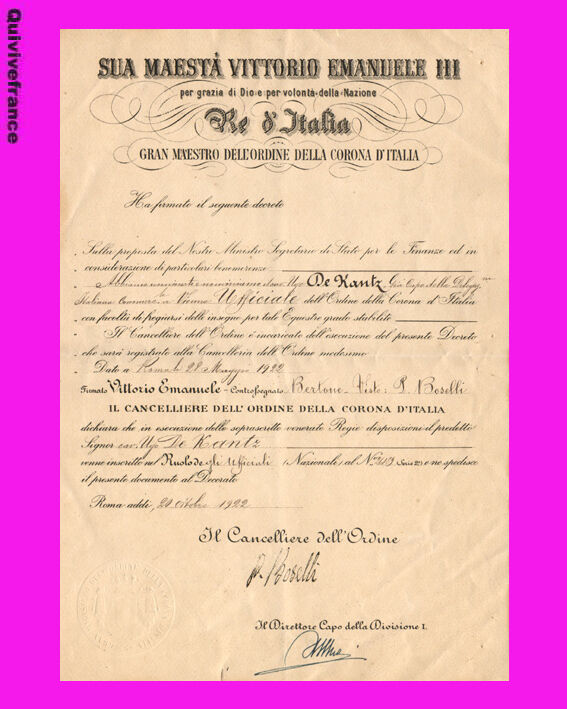 Quivivefrance
SUA MAESTÀ VITTORIO EMANUELE III
per grazia di Dio e per volontà della Nazione
Re d'Italia
GRAN MAESTRO DELL'ORDINE DELLA CORONA D'ITALIA
Ha firmato il seguente decreto
Sulla proposta del Nostro Ministro Segretario di Stato per le Finanze ed in
considerazione di particolari benemerenze
Abbiamo nominato e nominiamo Ugo De Kantz Già Capo della
Italiana a Vienna Ufficiale dell'Ordine della Corona d'Italia
con facoltà di fregiarsi delle insegne per tale Equestre grado stabilite
Il Cancelliere dell'Ordine è incaricato dell'esecuzione del presente Decreto
che sarà registrato alla Cancelleria dell'Ordine medesimo
Dato a Roma addì 28 Maggio 1922
Firmato Vittorio Emanuele - Controssegnato Bertone - Visto: P. Boselli
IL CANCELLIERE DELL'ORDINE DELLA CORONA D'ITALIA
dichiara che in esecuzione delle soprascritte venerate Regie disposizioni il predetto
Signor cav. Ugo De Kantz
venne inscritto nel Ruolo degli Ufficiali (Nazionali) al N.º e ne spedisce
il presente documento al Decorato
Roma addì, 20 ottobre 1922
Il Cancelliere dell'Ordine
P. Boselli
Il Direttore Capo della Divisione I.